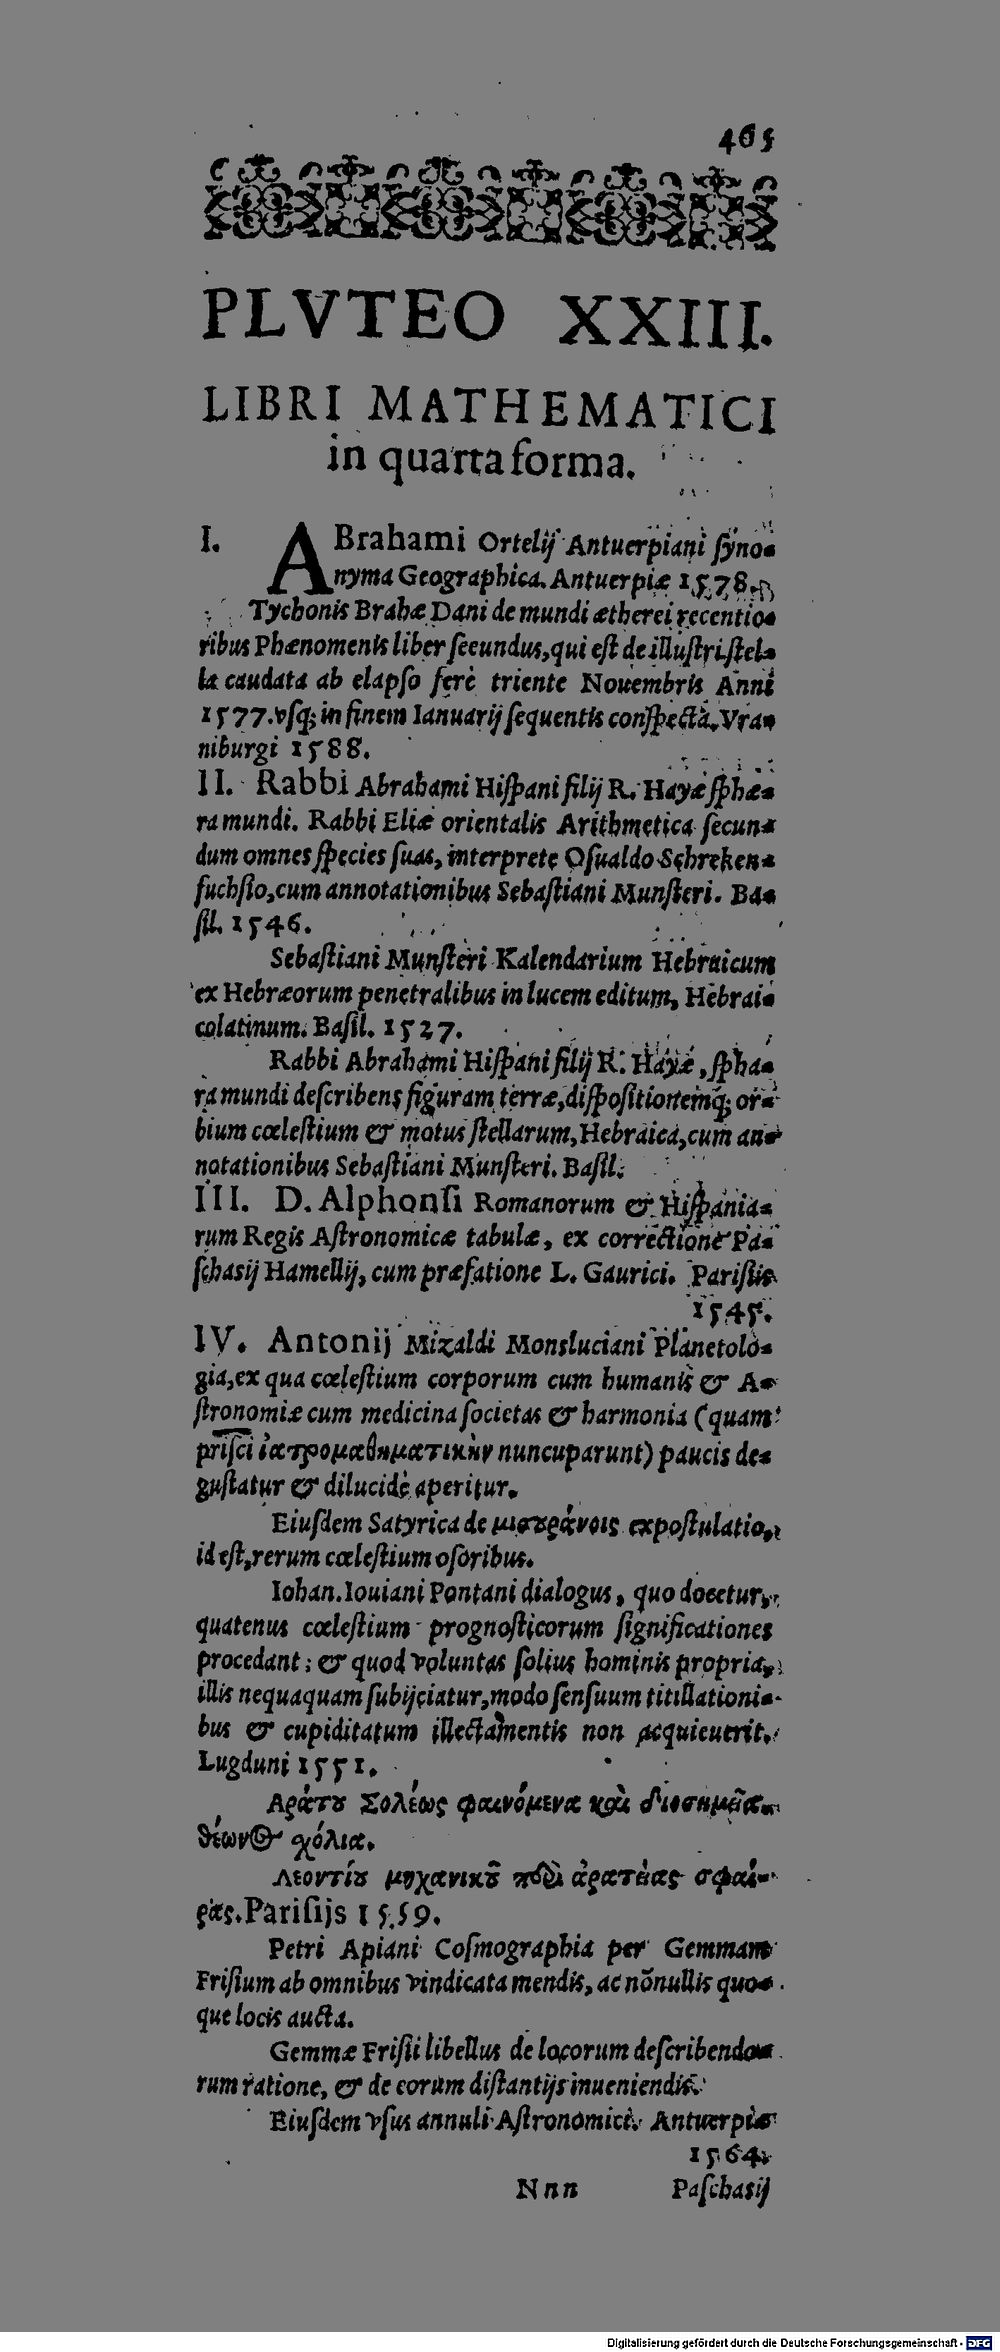 465
PLVTEO XXIII.
LIBRI MATHEMATICI
in quarta forma.
I. ABrahami Ortelij Antuerpiani ſyno-
nyma Geographica. Antuerpiæ 1578.
Tychonis Brahæ Dani de mundi ætherei recentio-
ribus Phænomenis liber ſecundus, qui eſt de illuſtri ſtel-
la caudata ab elapſo ferè triente Nouembris Anni
1577. vſq; in finem Ianuarij ſequentis conſpecta. Vra-
niburgi 1588.
II. Rabbi Abrahami Hiſpani filij R. Hayæ ſphæ-
ra mundi. Rabbi Eliæ orientalis Arithmetica ſecun-
dum omnes ſpecies ſuas, interprete Oſualdo Schreken-
fuchſio, cum annotationibus Sebaſtiani Munſteri. Ba-
ſil. 1546.
Sebaſtiani Munſteri Kalendarium Hebraicum
ex Hebræorum penetralibus in lucem editum, Hebrai-
colatinum. Baſil. 1527.
Rabbi Abrahami Hiſpani filij R. Hayæ, ſphæ-
ra mundi deſcribens figuram terræ, diſpoſitionemq; or-
bium cœleſtium & motus ſtellarum, Hebraica, cum an-
notationibus Sebaſtiani Munſteri. Baſil.
III. D. Alphonſi Romanorum & Hiſpania-
rum Regis Aſtronomicæ tabulæ, ex correctione Pa-
ſchasij Hamellij, cum præfatione L. Gaurici. Pariſiis
1545.
IV. Antonij Mizaldi Monsluciani Planetolo-
gia, ex qua cœleſtium corporum cum humanis & A-
ſtronomiæ cum medicina ſocietas & harmonia (quam
priſci ἰατρομαθηματικὴν nuncuparunt) paucis de-
guſtatur & dilucidè aperitur.
Eiuſdem Satyrica de μισουράνοις expoſtulatio,
id eſt, rerum cœleſtium oſoribus.
Iohan. Iouiani Pontani dialogus, quo docetur,
quatenus cœleſtium prognoſticorum ſignificationes
procedant: & quod voluntas ſolius hominis propria,
illis nequaquam ſubijciatur, modo ſenſuum titillationi-
bus & cupiditatum illectamentis non acquieuerit.
Lugduni 1551.
Αράτου Σολέως φαινόμενα καὶ διοσημεῖα.
θέωνος χόλια.
Λεοντίου μηχανικοῦ περὶ ἀρατείας σφαί-
ρας. Pariſijs 1559.
Petri Apiani Coſmographia per Gemmam
Friſium ab omnibus vindicata mendis, ac nõnullis quo-
que locis aucta.
Gemmæ Friſii libellus de locorum deſcribendo-
rum ratione, & de eorum diſtantijs inueniendis.
Eiuſdem vſus annuli Aſtronomici. Antuerpiæ
1564.
Nnn Paſchasij
Digitalisierung gefördert durch die Deutsche Forschungsgemeinschaft - DFG